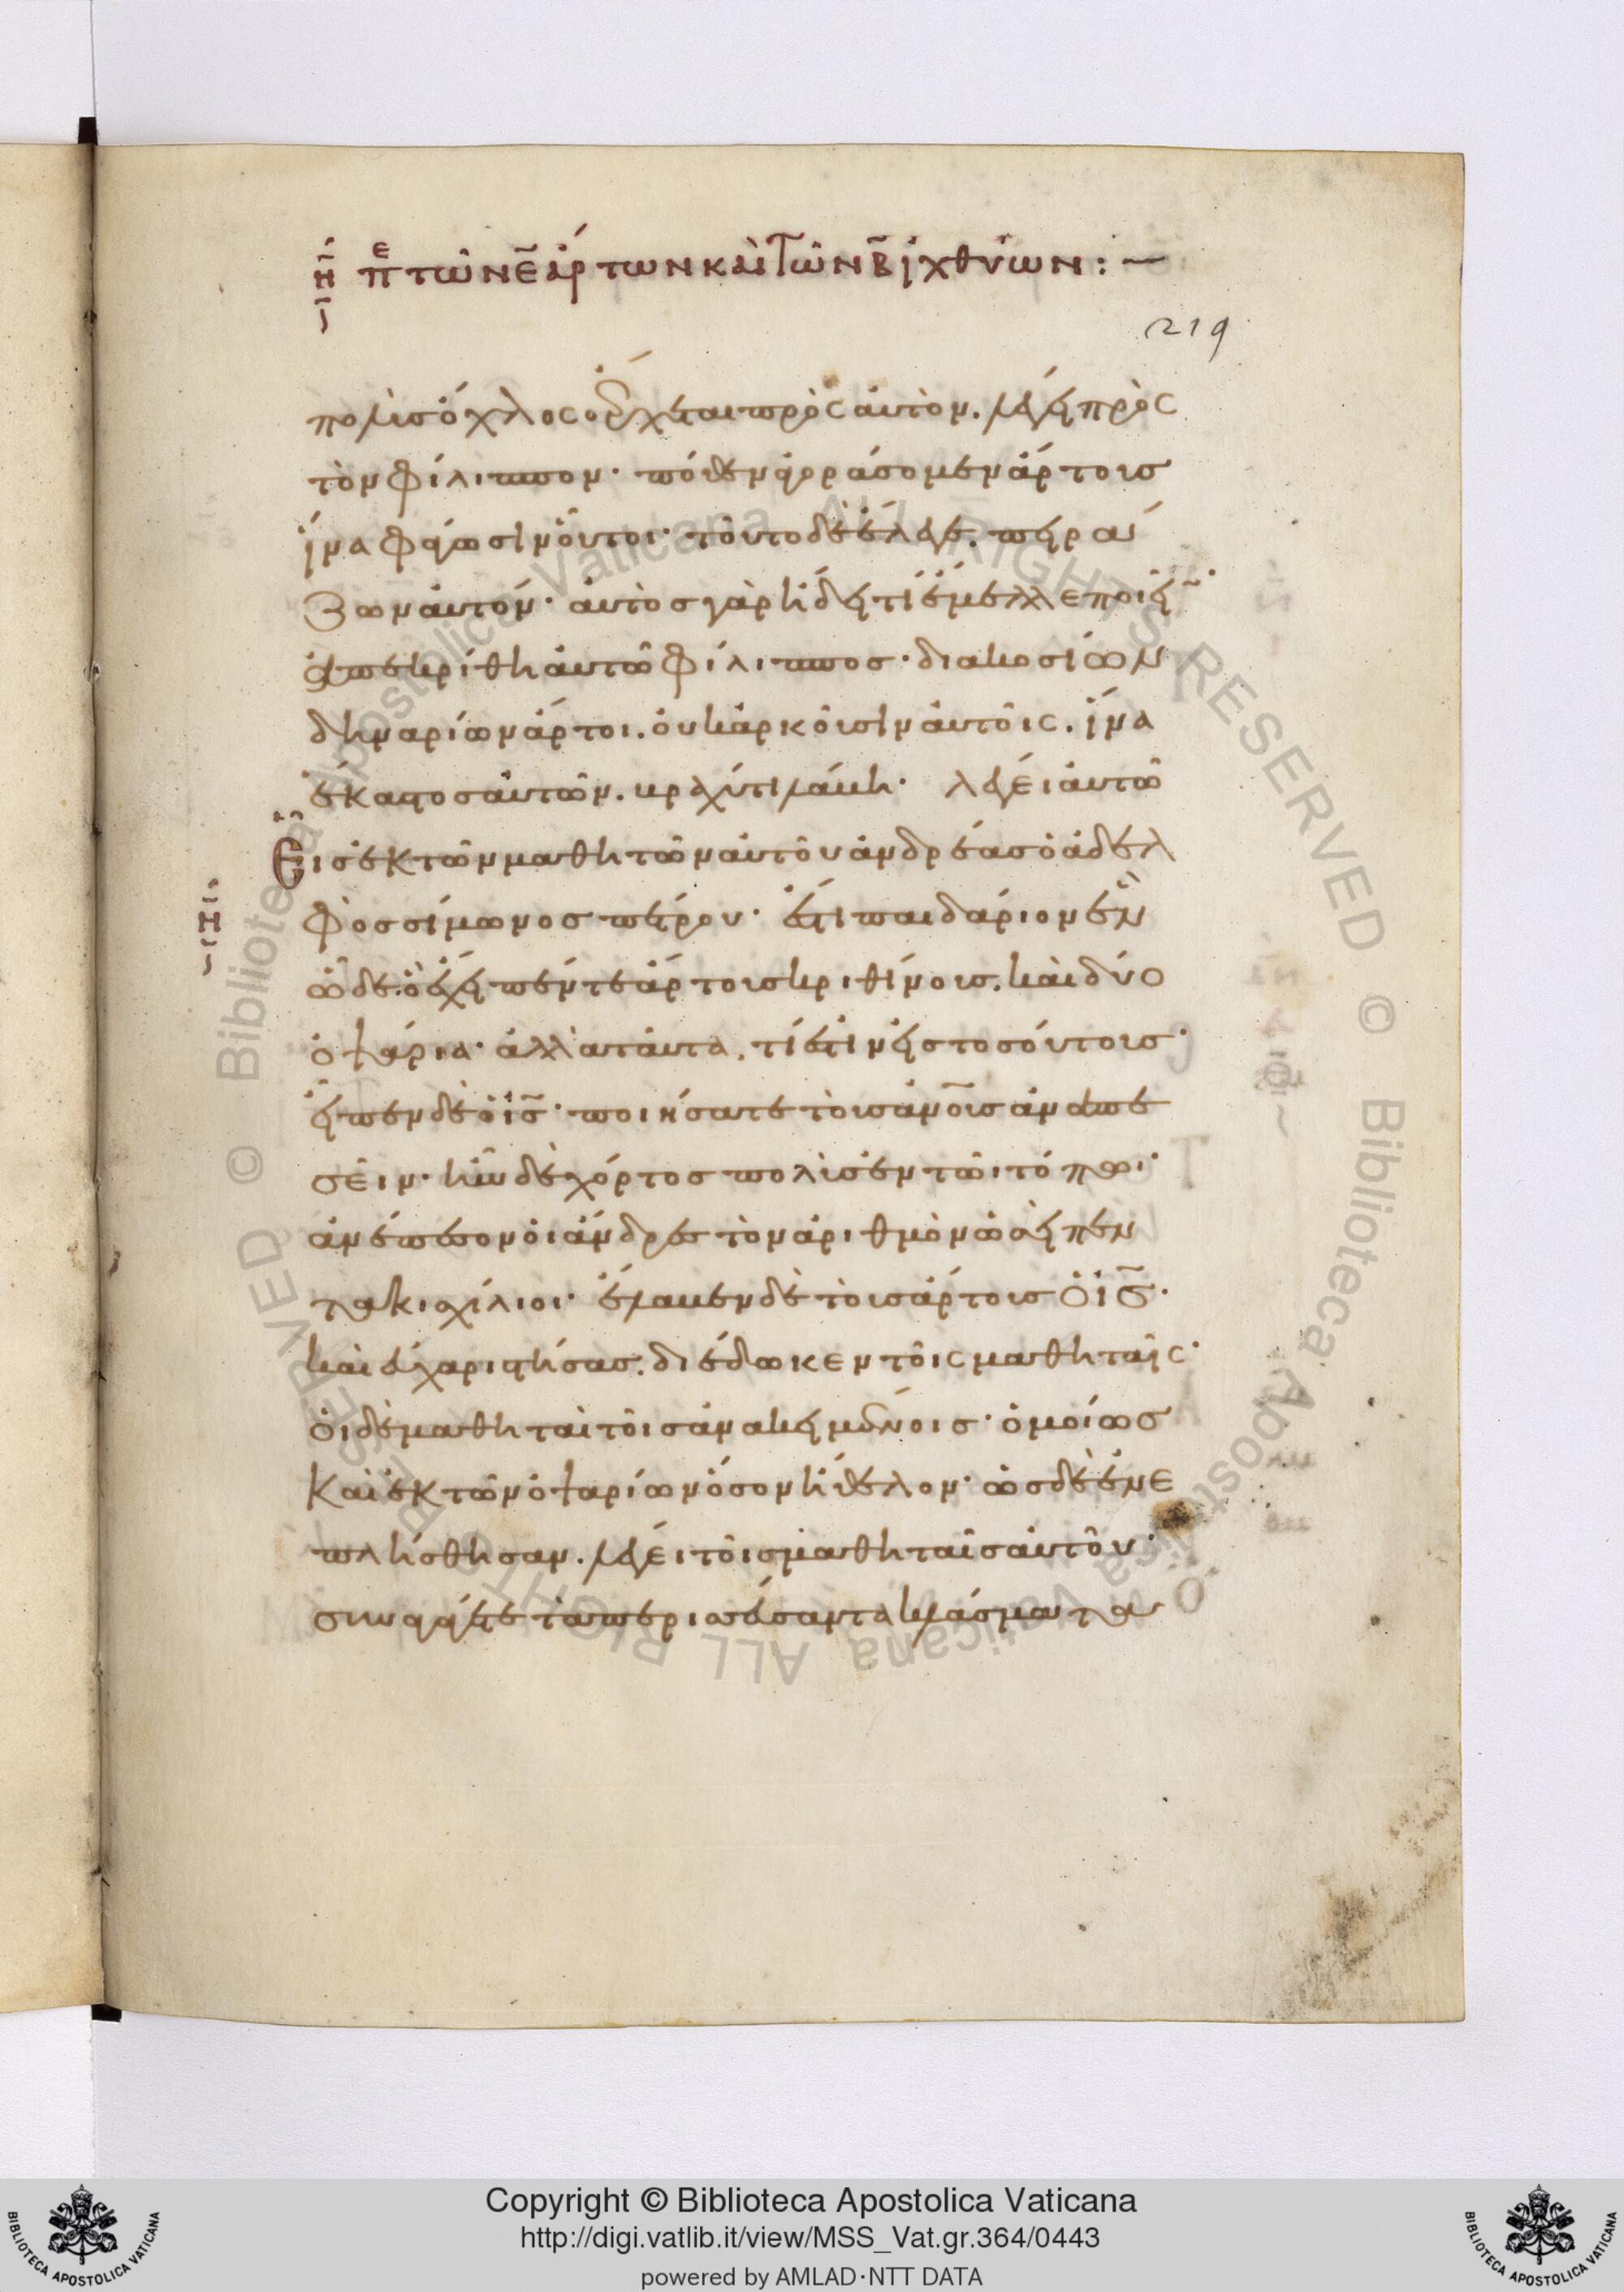 η πε τῶν ε̄ ἄρτων καὶ τῶν β̄ ἰχθύων : —
219
πολὺσ ὄχλος ἔρχεται πρὸς αὐτὸν. λέγει πρὸς
τὸν φίλιππον· πόθεν ἀγοράσομεν ἄρτους
ἵνα φάγωσιν οὗτοι· τοῦτο δὲ ἔλεγε. πειρά
ζων αὐτόν· αὐτὸσ γὰρ ἤδει τί ἔμελλε ποιεῖν·
ἀπεκρίθη αὐτῶ φίλιπποσ· διακοσίων
δηναρίων ἄρτοι. οὐκ ἀρκοῦσιν αὐτοῖς. ἵνα
ἕκαστοσ αὐτῶν. βραχύ τι λάβη· λέγει αὐτῶ
Εἷσ ἐκ τῶν μαθητῶν αὐτοῦ ἀνδρέασ ὁ ἀδελ
φὸσ σίμωνοσ πέτρου· ἔστι παιδάριον ἓν
ὧδε. ὃ ἔχει πέντε ἄρτουσ κριθίνουσ. καὶ δύο
ὀψάρια· ἀλλὰ ταῦτα. τί ἐστιν εἰσ τοσούτουσ·
εἶπεν δὲ ὁ ῑσ̄· ποιήσατε τοὺσ ἀν̄ουσ ἀναπε
σεῖν· ἦν δὲ χόρτοσ πολὺσ ἐν τῶι τόπωι·
ἀνέπεσον οἱ ἄνδρεσ τὸν ἀριθμὸν ὡσεὶ πεν
τακισχίλιοι· ἔλαβεν δὲ τοὺσ ἄρτουσ ὁ ῑσ̄.
καὶ εὐχαριστήσασ. διέδωκεν τοῖς μαθηταῖς·
οἱ δὲ μαθηταὶ τοῖσ ἀνακειμένοισ· ὁμοίωσ
καὶ ἐκ τῶν ὀψαρίων ὅσον ἤθελον· ὡσ δὲ ἐνε
πλήσθησαν. λέγει τοῖσ μαθηταῖσ αὐτοῦ·
συναγάγετε τὰ περισσεύσαντα κλάσματα
η
Copyright © Biblioteca Apostolica Vaticana
http://digi.vatlib.it/view/MSS_Vat.gr.364/0443
powered by AMLAD·NTT DATA
BIBLIOTECA APOSTOLICA VATICANA
BIBLIOTECA APOSTOLICA VATICANA
© Biblioteca Apostolica Vaticana ALL RIGHTS RESERVED
© Biblioteca Apostolica Vaticana ALL RIGHTS RESERVED